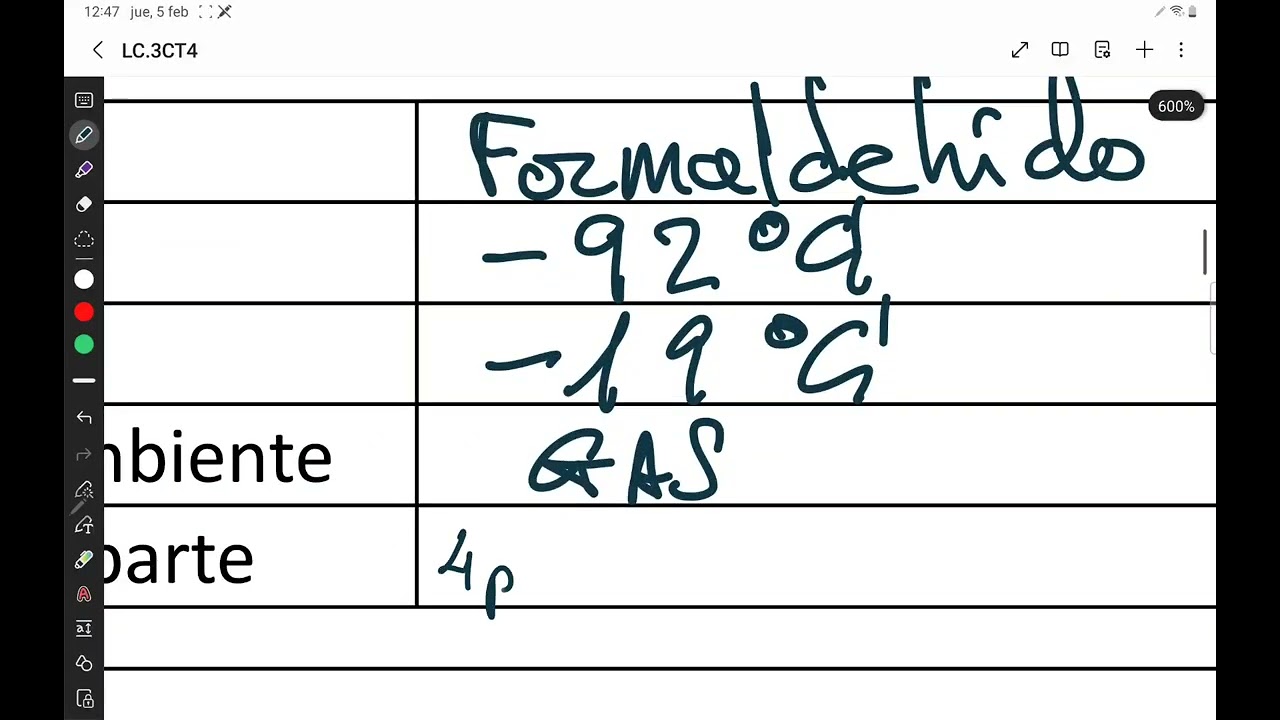 12:47 jue, 5 feb
LC.3CT4
600%
Formaldehído
-92 °C
-19 °C
mbiente GAS
parte 4p